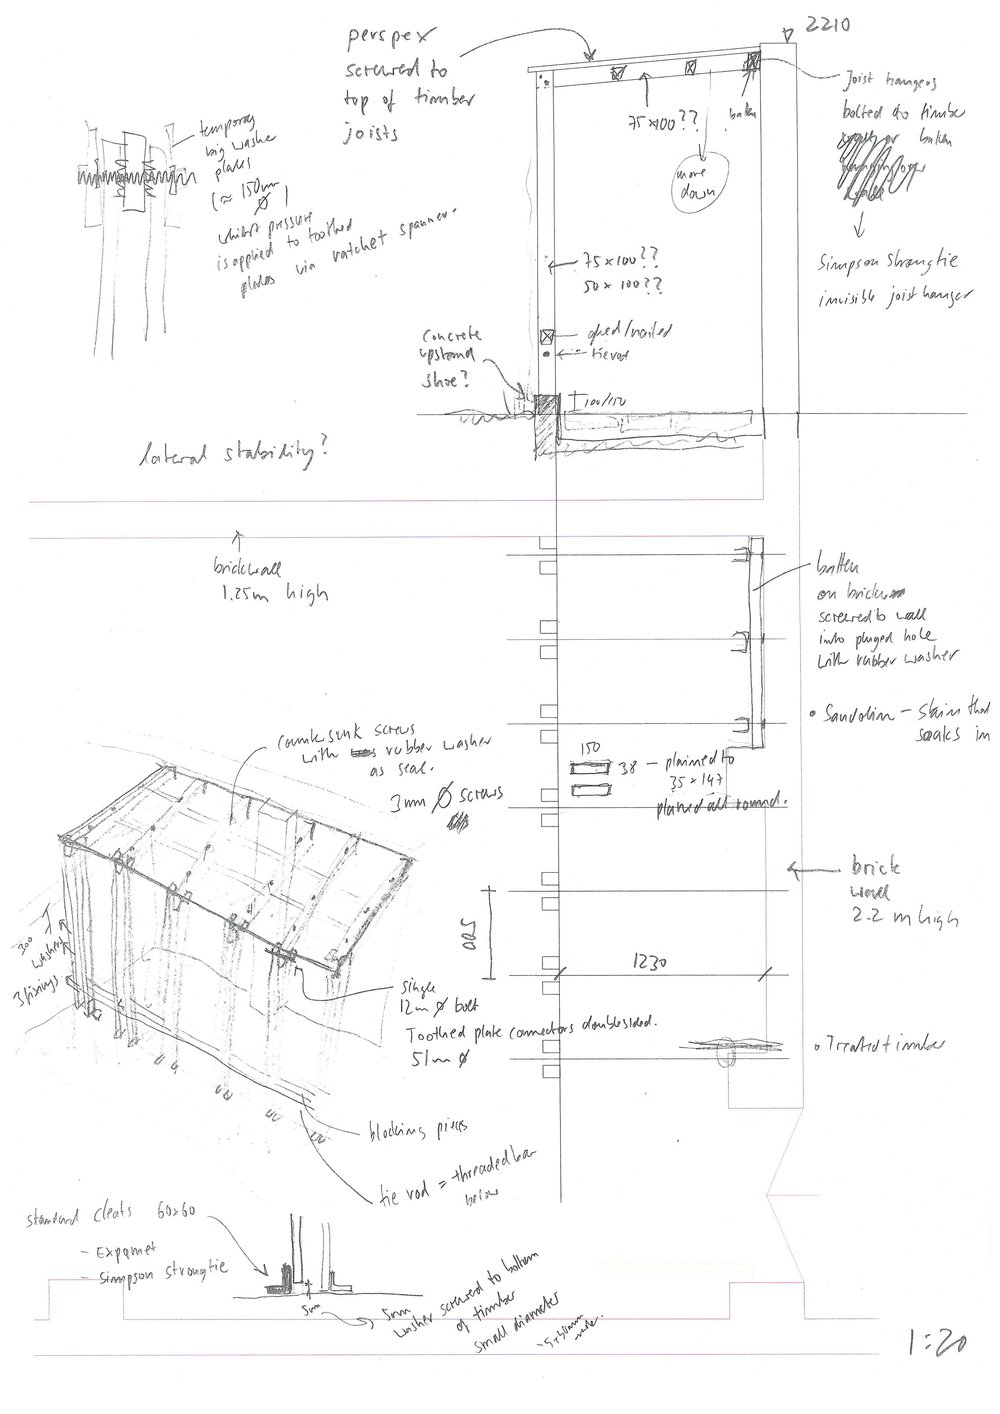 perspex
screwed to
top of timber
joists
2210
75x100??
batten
move
down
Joist hangers
bolted to timber
or batten
Simpson Strongtie
invisible joist hanger
temporary
big washer
plates
(≈ 150mm
Ø )
whilst pressure
is applied to toothed
plates via ratchet spanner.
75x100??
50x100??
glued/nailed
tie rod
concrete
upstand
shoe?
100/150
lateral stability?
brick wall
1.25m high
batten
on brick
screwed to wall
into pluged hole
with rubber washer
• Sandolin - Stain that
soaks in
countersunk screws
with rubber washer
as seal.
3mm Ø screws
150
38 - plained to
35 x 147
planed all round.
brick
wall
2.2 m high
500
1230
300
washers
3 fixings
single
12mm Ø bolt
Toothed plate connectors double sided.
51mm Ø
• Treated timber
blocking pieces
tie rod = threaded bar
below
standard cleats 60x60
- Expamet
- Simpson strongtie
5mm
5mm
washer screwed to bottom
of timber
small diameter
1:20